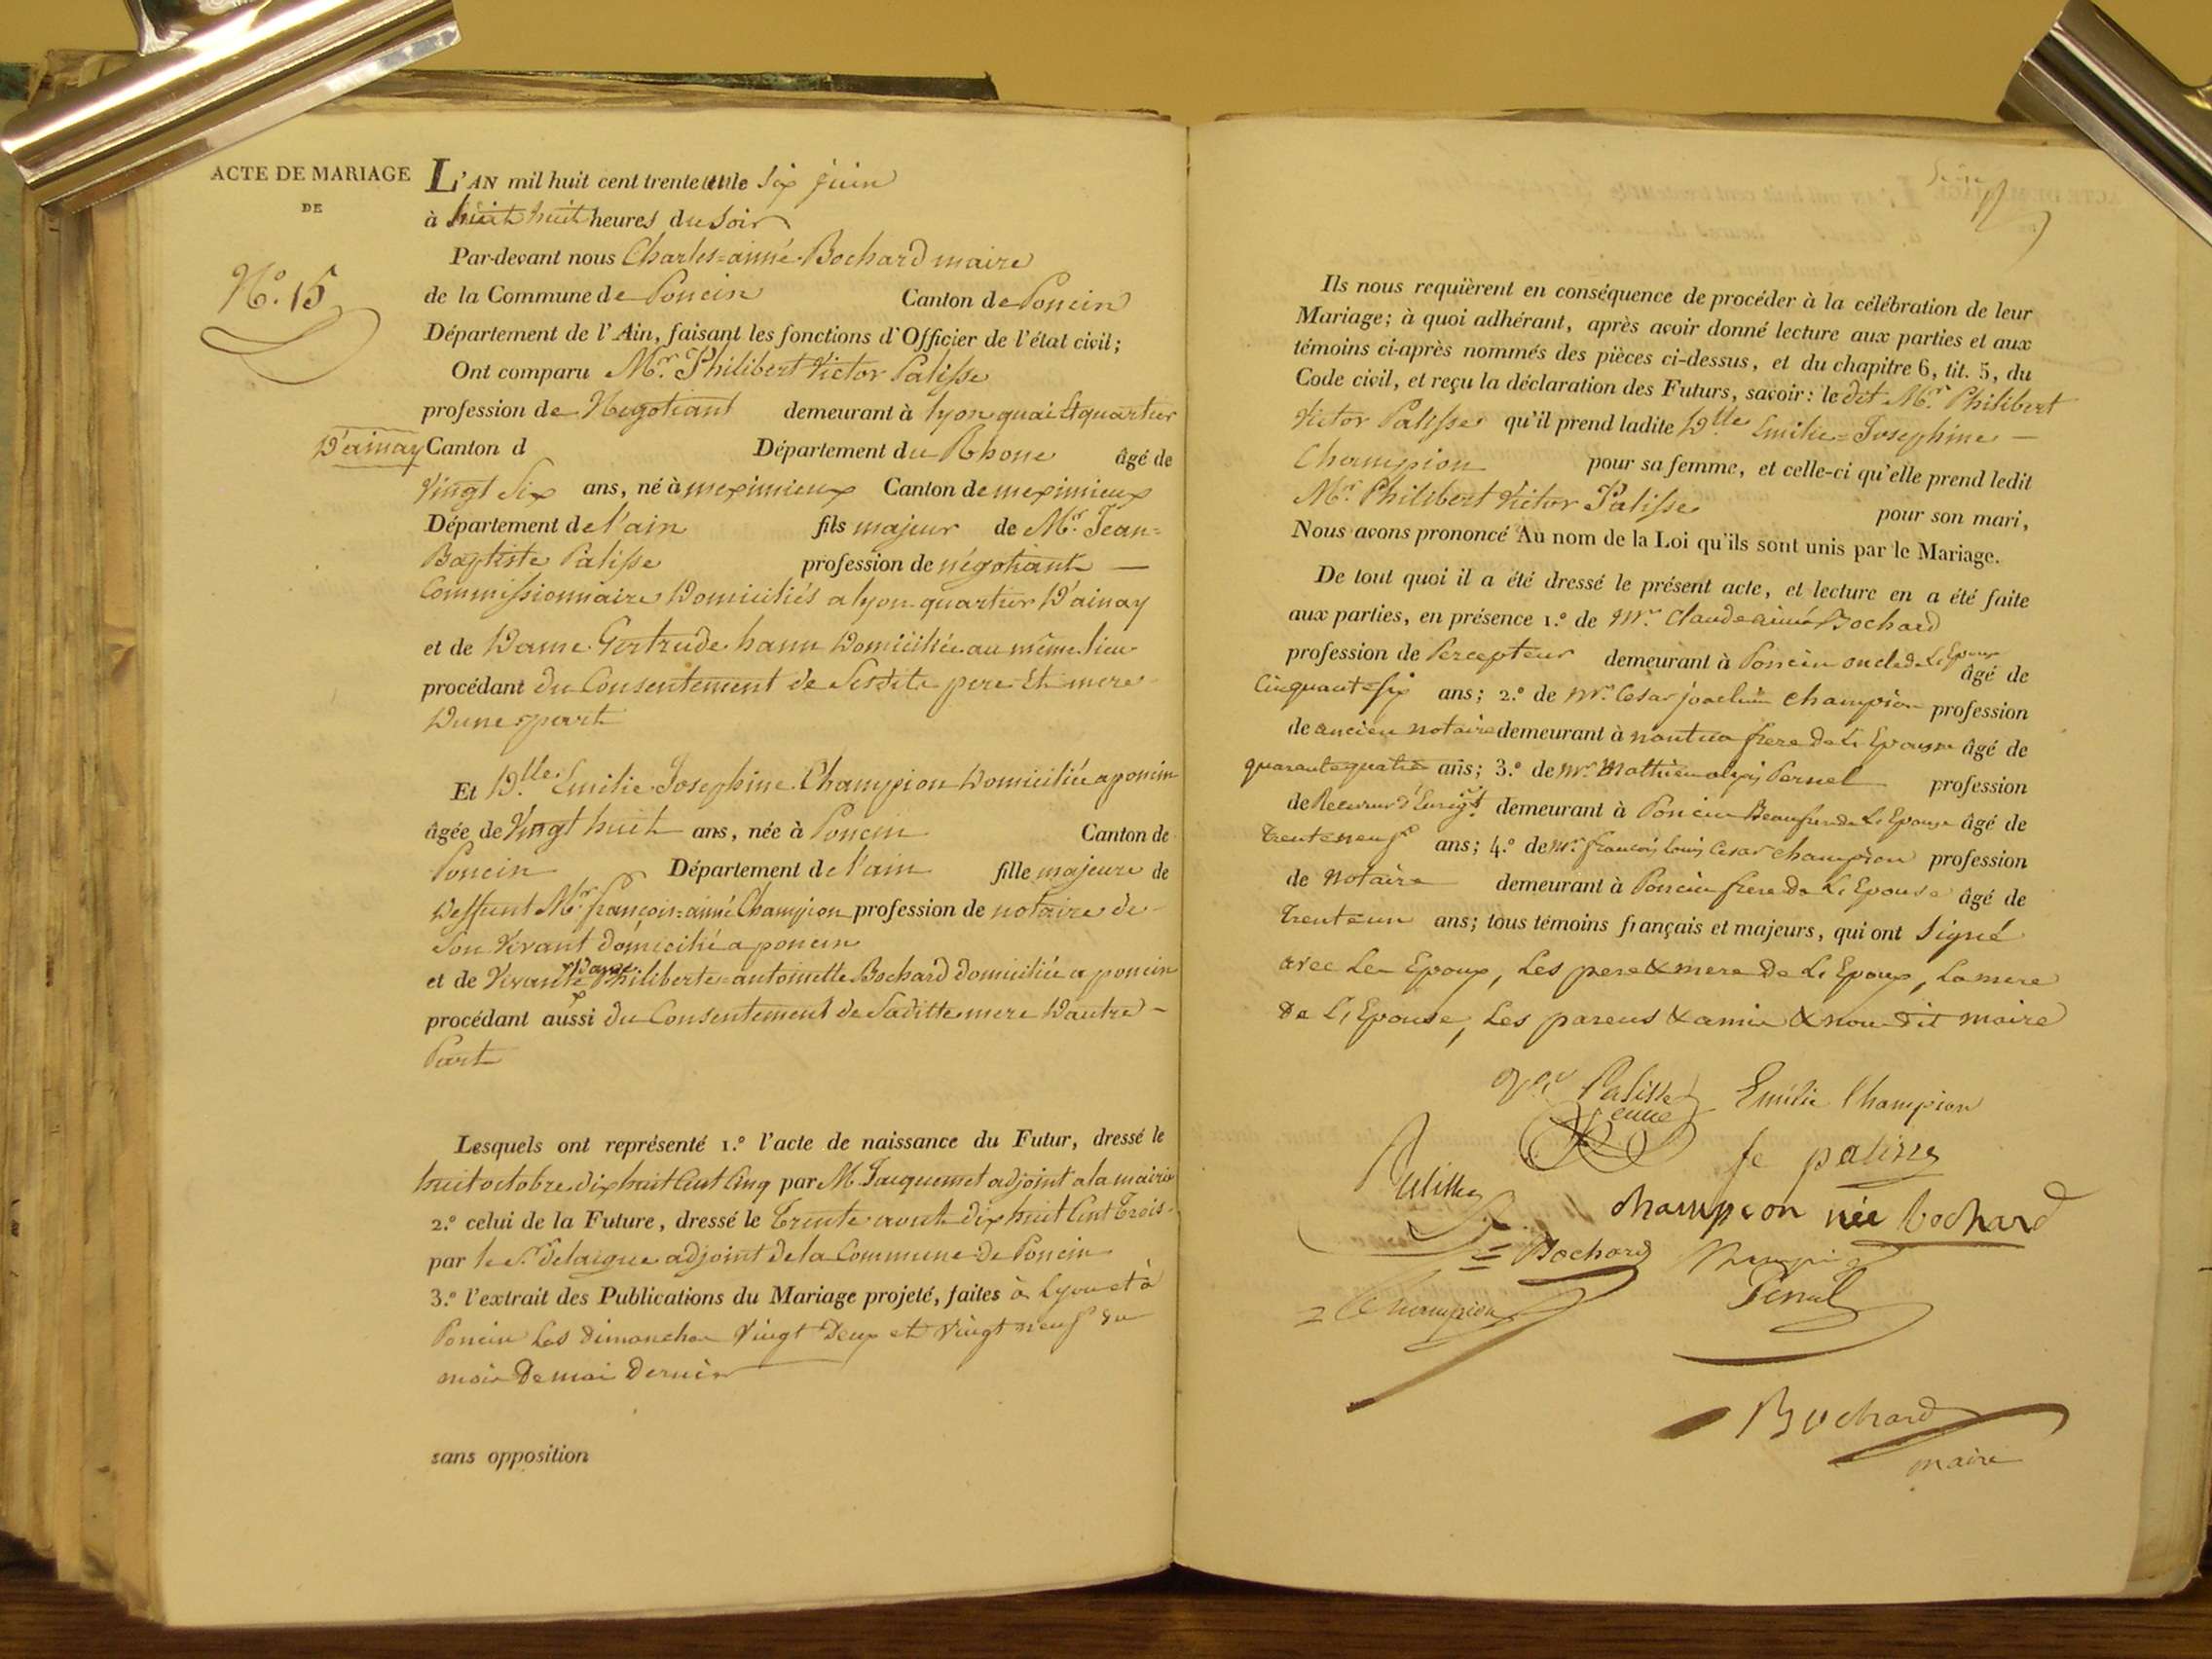 ACTE DE MARIAGE
DE
N.o 15
L'AN mil huit cent trente le six juin
à huit huit heures du soir
Par-devant nous Charles=aimé Bochard maire
de la Commune de Poncin Canton de Poncin
Département de l'Ain, faisant les fonctions d'Officier de l'état civil;
Ont comparu Mr. Philibert Victor Palisse
profession de Negotiant demeurant à lyon quai Et quartier
D'ainay Canton d Département du Rhone âgé de
Vingt Six ans, né à meximieux Canton de meximieux
Département de l'ain fils majeur de Mr. Jean=
Baptiste Palisse profession de négotiant —
Commissionnaire Domiciliés a lyon quartier D'ainay
et de Dame Gertrude hann Domiciliée au même lieu
procédant du Consentement de Sesdits pere Et mere
D'une part
Et Dlle. Emilie Josephine Champion Domiciliée a poncin
âgée de Vingt huit ans, née à Poncin Canton de
Poncin Département de l'ain fille majeure de
Deffunt Mr. françois=aimé Champion profession de notaire de
Son Vivant domicilié a poncin
et de Vivante Dame Philiberte=antoinette Bochard domiciliée a poncin
procédant aussi du Consentement de Saditte mere D'autre –
Part
Lesquels ont représenté 1.o l'acte de naissance du Futur, dressé le
huit octobre dix huit Cent Cinq par M. Jacquemet adjoint a la mairie
2.o celui de la Future, dressé le trente aout dix huit Cent Trois
par le Sr. Delaigue adjoint de la Commune de Poncin
3.o l'extrait des Publications du Mariage projeté, faites à Lyon et à
Poncin Les dimanches Vingt Deux et Vingt neuf du
mois De mai Dernier
sans opposition
Ils nous requièrent en conséquence de procéder à la célébration de leur
Mariage; à quoi adhérant, après avoir donné lecture aux parties et aux
témoins ci-après nommés des pièces ci-dessus, et du chapitre 6, tit. 5, du
Code civil, et reçu la déclaration des Futurs, savoir: le dit Mr. Philibert
Victor Palisse qu'il prend ladite Dlle Emilie=Josephine —
Champion pour sa femme, et celle-ci qu'elle prend ledit
Mr. Philibert Victor Palisse pour son mari,
Nous avons prononcé Au nom de la Loi qu'ils sont unis par le Mariage.
De tout quoi il a été dressé le présent acte, et lecture en a été faite
aux parties, en présence 1.o de Mr. Claude aimé Bochard
profession de Percepteur demeurant à Poncin oncle de L'Epouse âgé de
Cinquante six ans; 2.o de Mr. Cesar joachim Champion profession
de ancien notaire demeurant à nantua frere de L'Epouse âgé de
quarante quatre ans; 3.o de Mr. Mathieu Pernel profession
de Receveur d'Enregt. demeurant à Poncin Beaufrere de L'Epouse âgé de
Trente neuf ans; 4.o de Mr. françois louis Cesar Champion profession
de Notaire demeurant à Poncin frere De L'Epouse âgé de
Trente un ans; tous témoins français et majeurs, qui ont Signé
avec Les Epoux, Les pere & mere De L'Epoux, La mere
De L'Epouse, Les parens & amis & nou dit maire
Palisse Jeune
Emilie Champion
Palisse
palisse
Champion née bochard
Bochard
Champion
Champion
Pernel
Bochard
maire